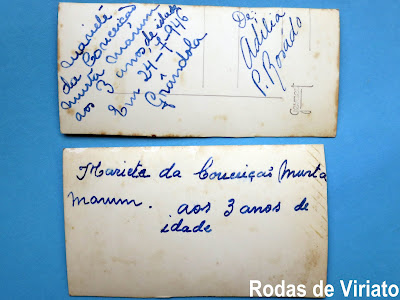 Marieté
da Conceição
Murta Marum
aos 3 anos, de idade
Em 24-7-946
Grândola
De:
Adilia
P. Rosado
Marieta da Conceição Murta
Marum. aos 3 anos de
idade
Rodas de Viriato